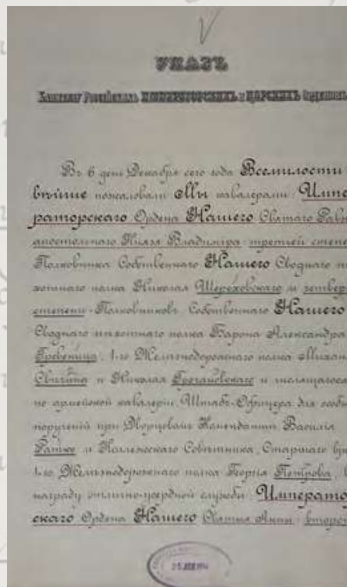 УКАЗЪ
Капитулу Россійскихъ ИМПЕРАТОРСКИХЪ и ЦАРСКИХЪ Орденовъ.
Въ 6 день Декабря сего года Всемилости
вѣйше пожаловали Мы кавалерами: Импе
раторскаго Ордена Нашего Святаго Равно
апостольнаго Князя Владиміра: третьей степе
Полковника Собственнаго Нашего Своднаго пѣ
хотнаго полка Николая Шереховскаго и четвер
степени: Полковниковъ: Собственнаго Нашего
Своднаго пѣхотнаго полка Барона Александра
Гревеница, 1-го Желѣзнодорожнаго полка Михаи
Свѣчина и Николая и числящагося
по армейской кавалеріи, Штабъ-Офицера для особы
порученій при Дворцовомъ Комендантѣ Василія
Ратко и Коллежскаго Совѣтника, Старшаго Вра
1-го Желѣзнодорожнаго полка Георгія Петрова, въ
награду отлично-усердной службы; Императо
скаго Ордена Нашего Святыя Анны: второй